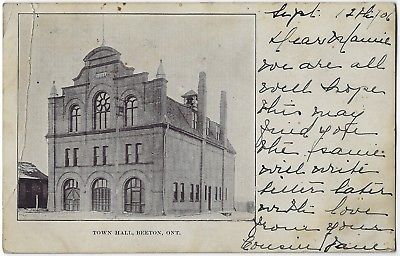 Sept. 12th/06
Dear Mamie
we are all
well hope
this may
find you
the same
will write
letter later
with love
from your
Cousin Jane
TOWN HALL, BEETON, ONT.